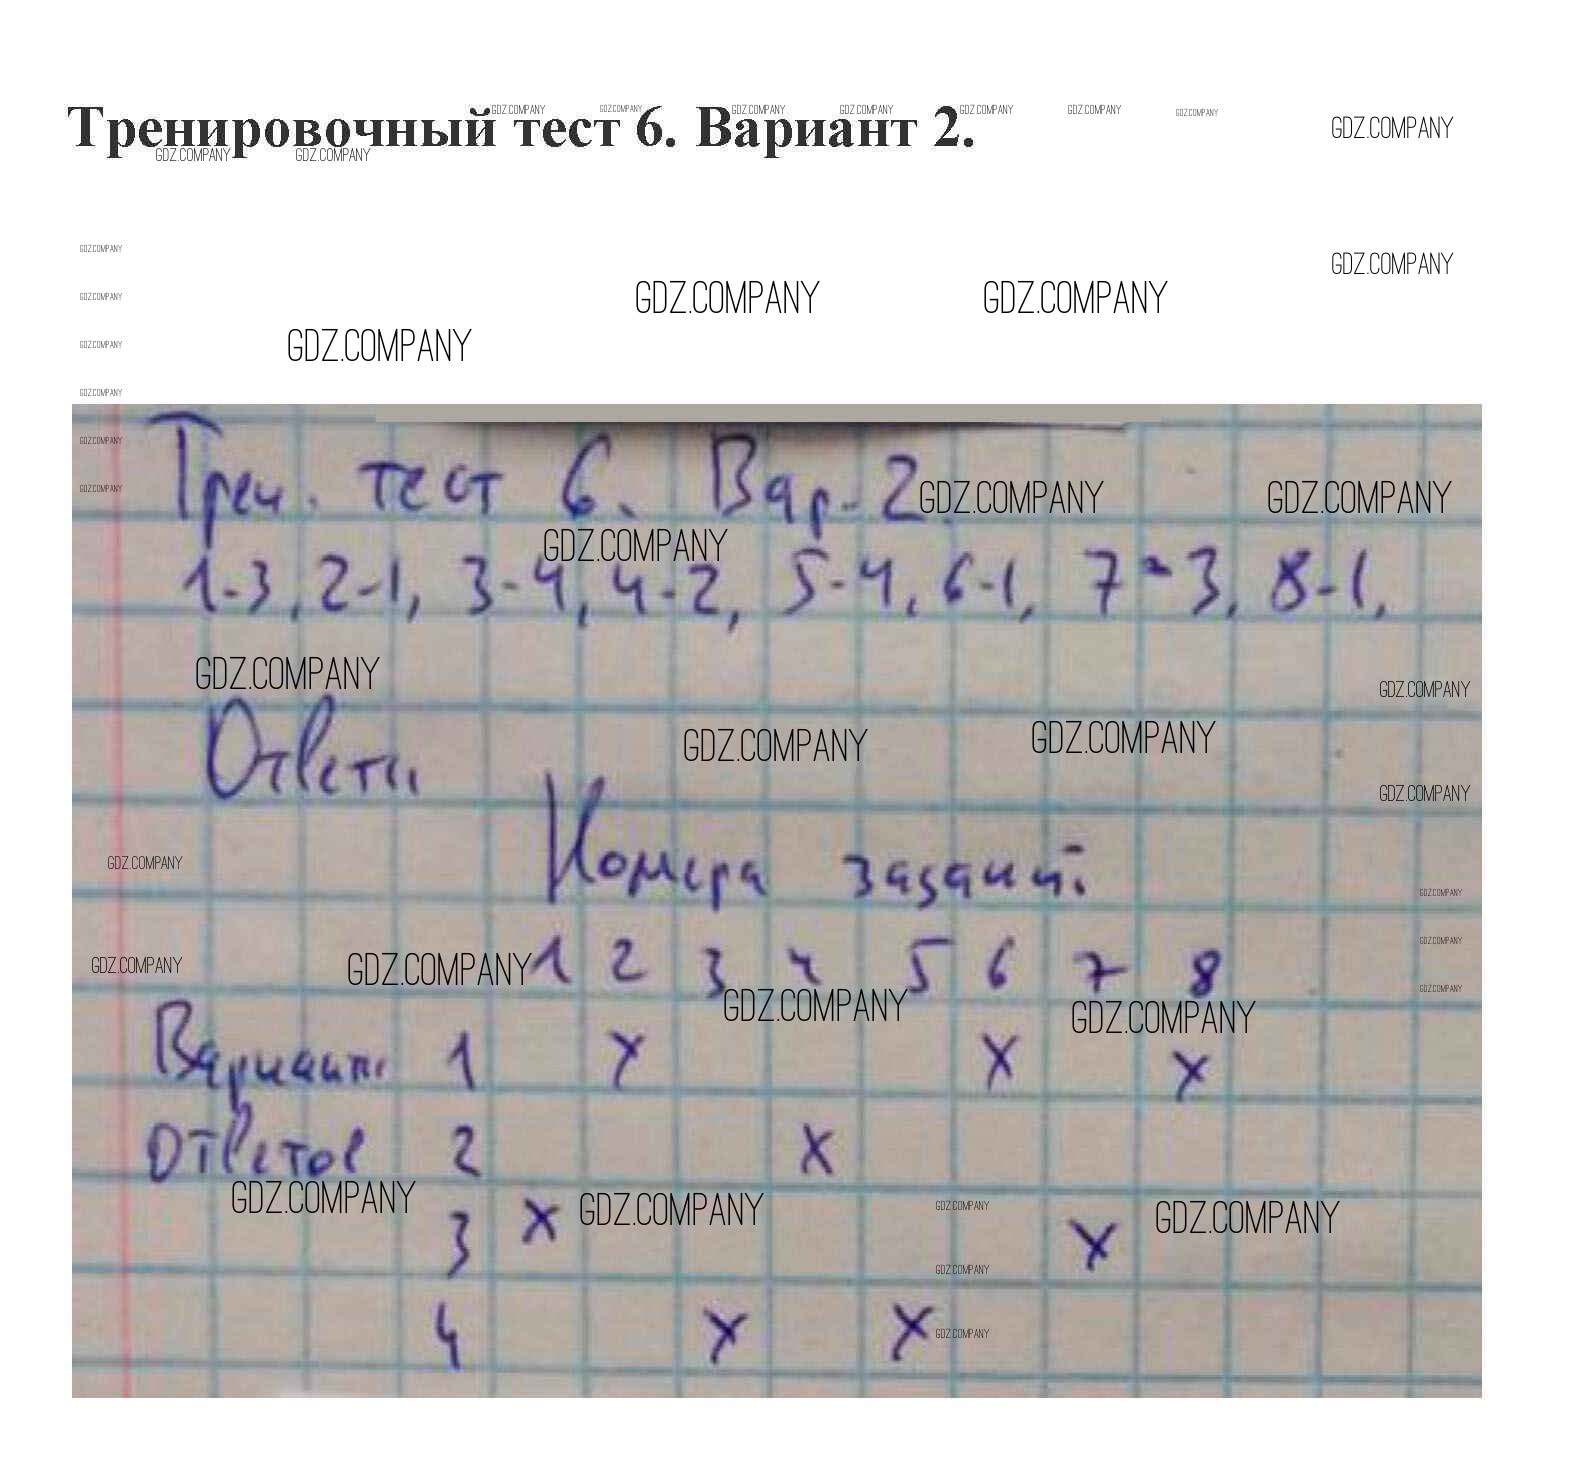 Тренировочный тест 6. Вариант 2.
Трен. тест 6. Вар. 2.
1-3, 2-1, 3-4, 4-2, 5-4, 6-1, 7-3, 8-1,
Ответы
Номера заданий:
1 2 3 4 5 6 7 8
Варианты 1 X X X
ответов 2 X
3 X X
4 X X
GDZ.COMPANY